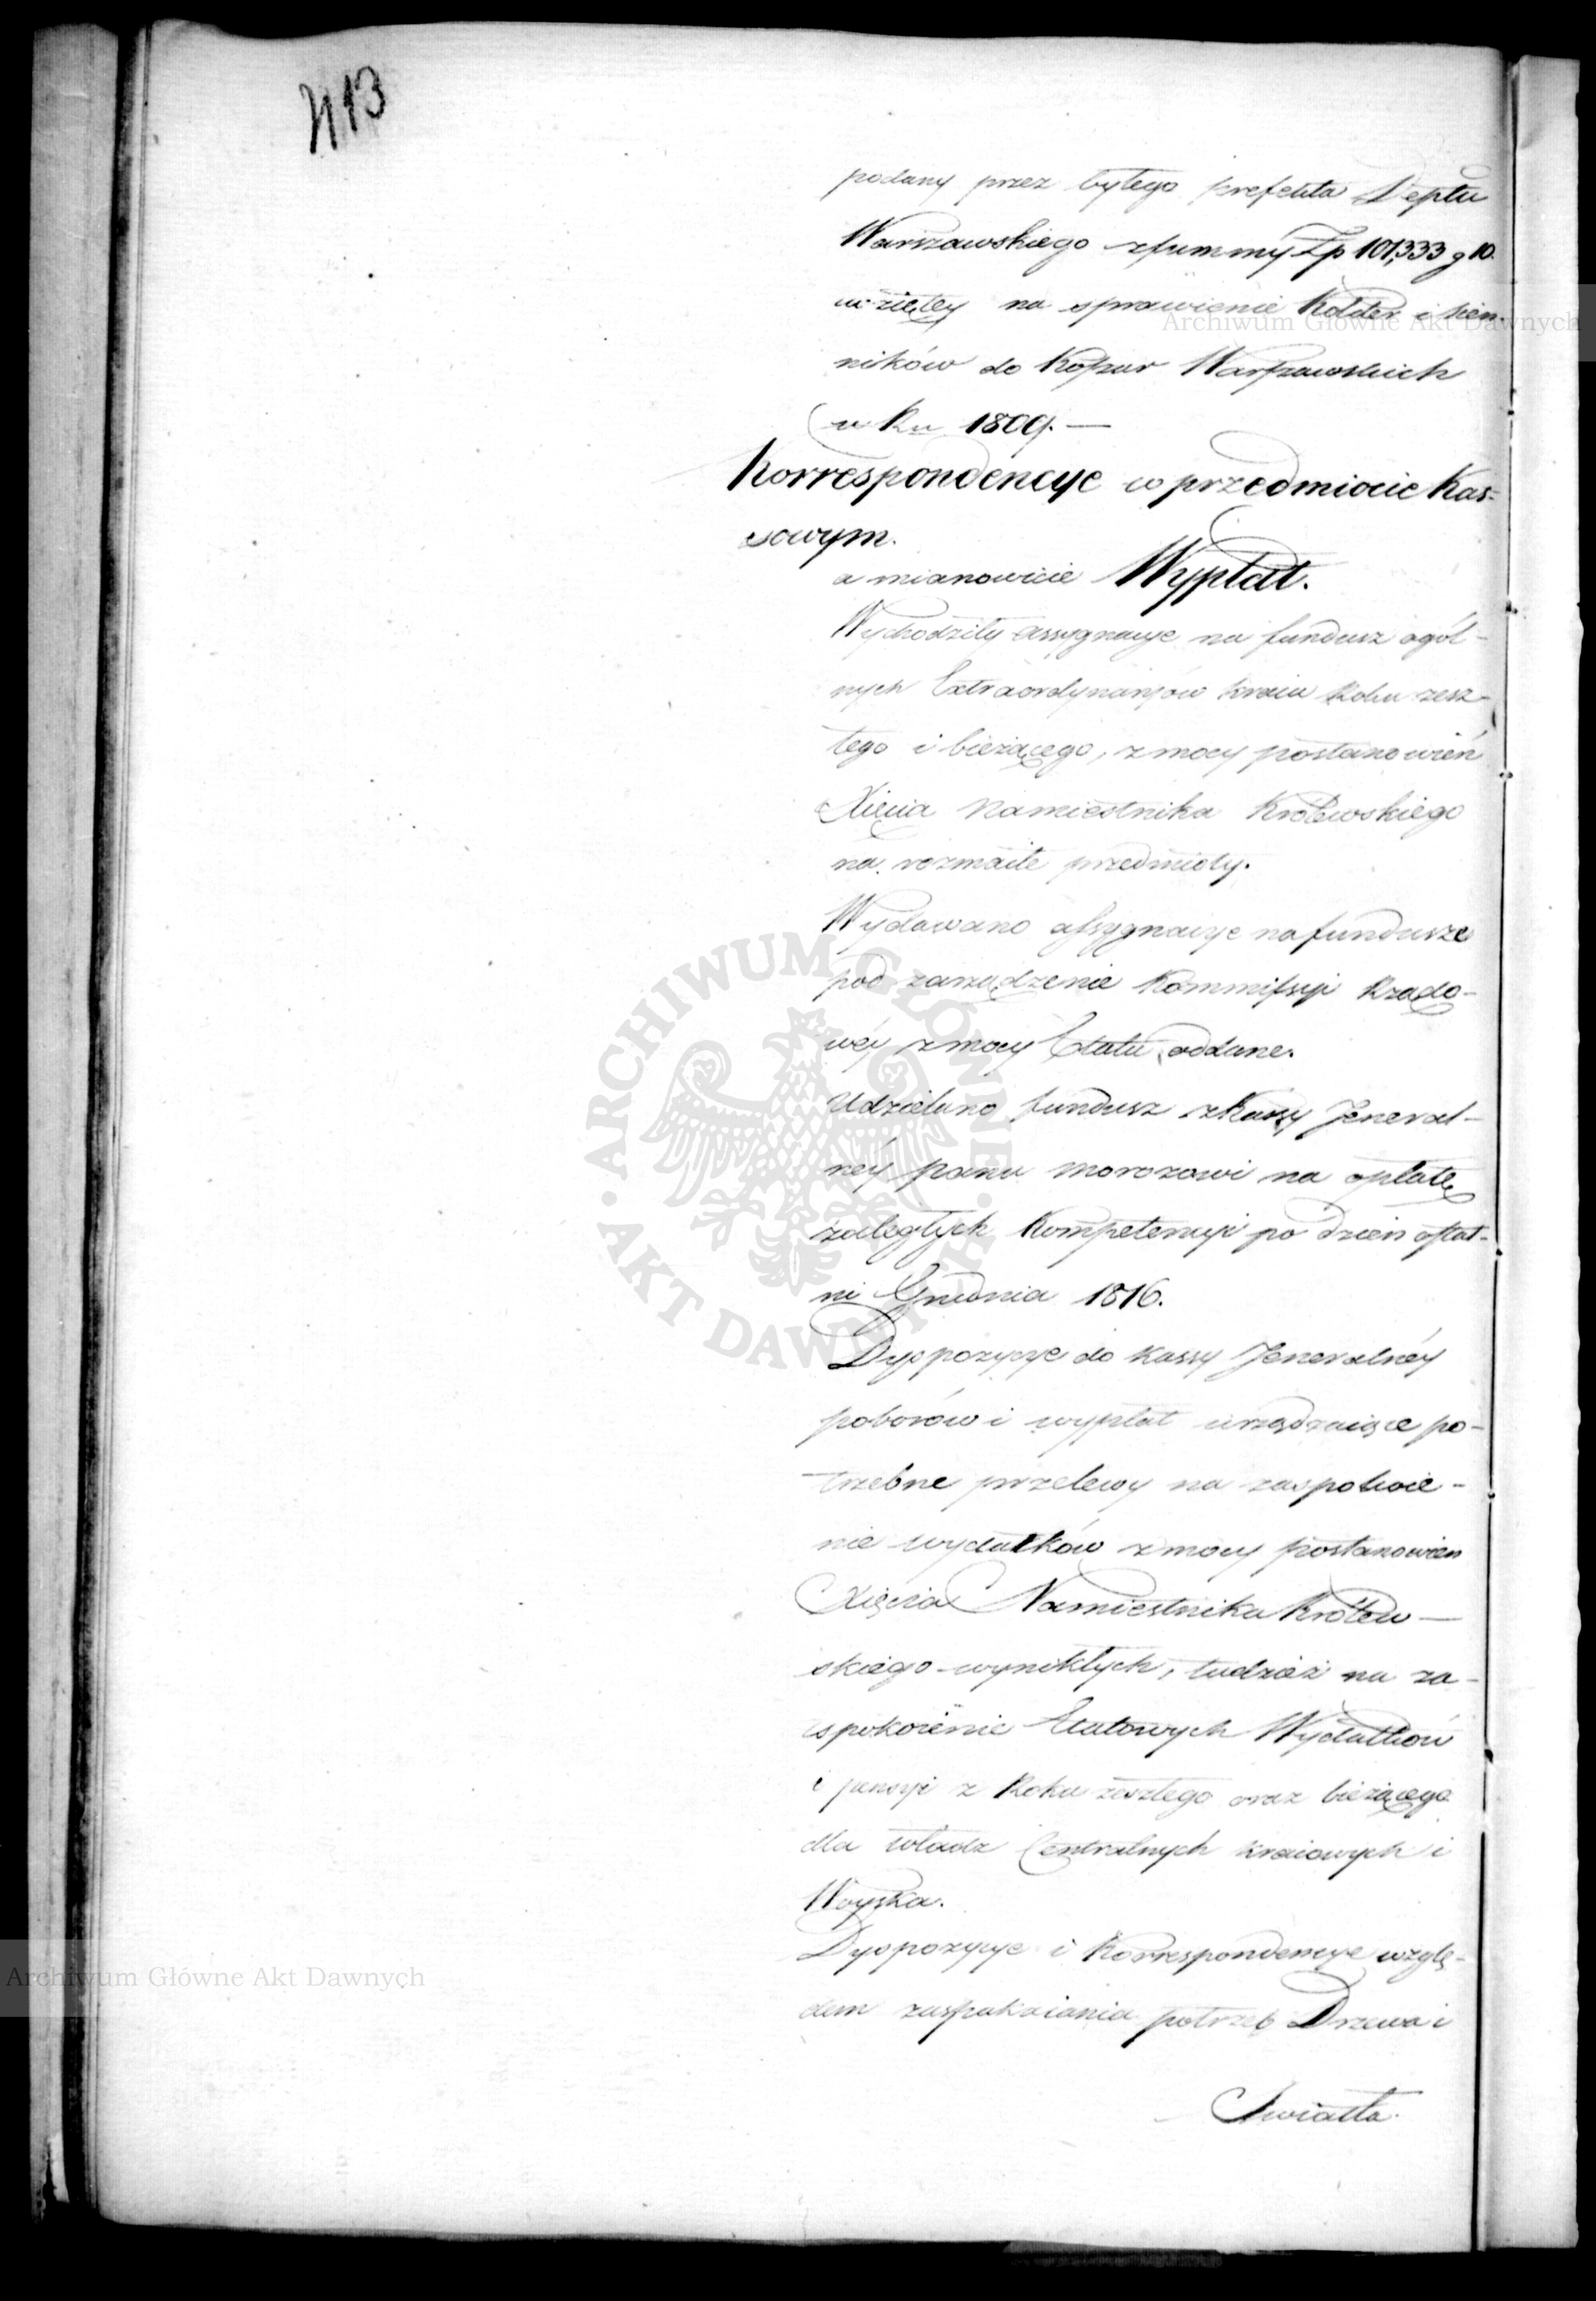 413
podany przez byłego prefekta Deptu
Warszawskiego z summy Zp 101,333 g 10.
wziętey na sprawienie Kołder i sien-
ników do Koszar Warszawskich
w Ru 1809. —
Korrespondencye w przedmiocie Kas=
sowym.
a mianowicie Wypłat.
Wychodziły assygnacye na fundusz ogól-
nych Extraordynaryów kraiu Roku zesz-
łego i bieżącego, z mocy postanowień
Xięcia Namiestnika Królewskiego
na rozmaite przedmioty.
Wydawano assygnacye na fundusze
pod zarządzenie Kommissyi Rządo-
wéy z mocy Etatu oddane.
Udzielano fundusz z Kassy Jeneral-
néy panu Morozowi na opłatę
zaległych Kompetencyi po dzień ostat-
ni Grudnia 1816.
Dyspozycye do Kassy Jeneralnéy
poborów i wypłat urządzaiące po-
trzebne przelewy na zaspokoie-
nie wydatków z mocy postanowień
Xięcia Namiestnika Królew—
skiego wynikłych, tudzież na za-
spokoienie Etatowych Wydatków
i pensyi z Roku zeszłego oraz bieżącego
dla władz Centralnych kraiowych i
Woyska.
Dyspozycye i Korrespondencye wzglę-
dem zaspakaiania potrzeb Drzewa i
Swiatła.
Archiwum Główne Akt Dawnych
ARCHIWUM GŁÓWNE • AKT DAWNYCH •
Archiwum Główne Akt Dawnych